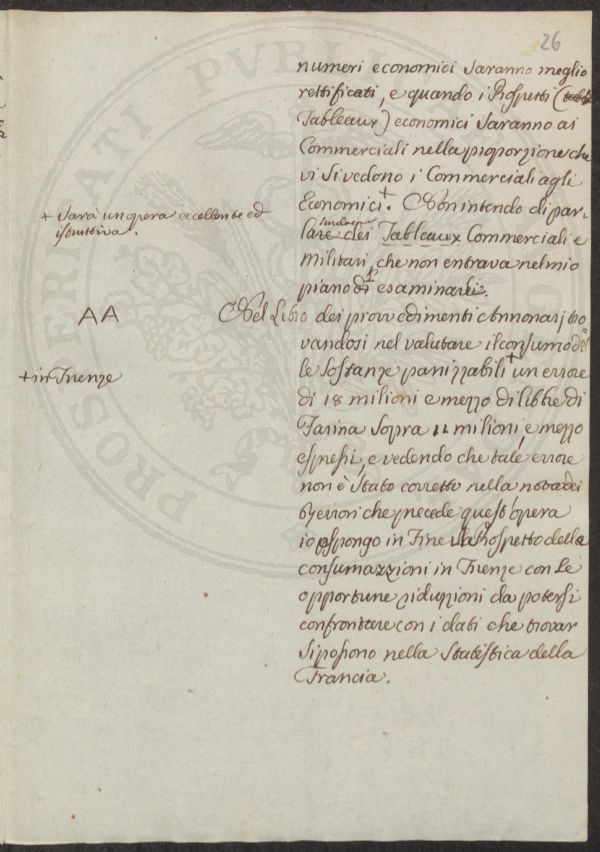 26
numeri economici saranno meglio
rettificati, e quando i Prospetti (
Tableaux) economici saranno ai
Commerciali nella proporzione che
vi si vedono i Commerciali agli
Economici.+ Non intendo di par-
lare dei Tableaux Commerciali e
militari, che non entrava nel mio
piano di esaminarli.
+ Sarà un opera eccellente ed
istruttiva.
AA
Nel Libro dei provvedimenti Annonarj tro
vandosi nel valutare il consumo del
le sostanze panizzabili + un errore
+ in Firenze
di 18 milioni e mezzo di libbre di
Farina sopra 11 milioni, e mezzo
espressi, e vedendo che tale errore
non è stato corretto nella nota dei
errori che precede quest'opera
io espongo in Fine il Prospetto della
consumazzioni in Firenze con le
opportune riduzioni da potersi
confrontare con i dati che trovar
si possono nella Statistica della
Francia.
PROSPERITATI PUBLI